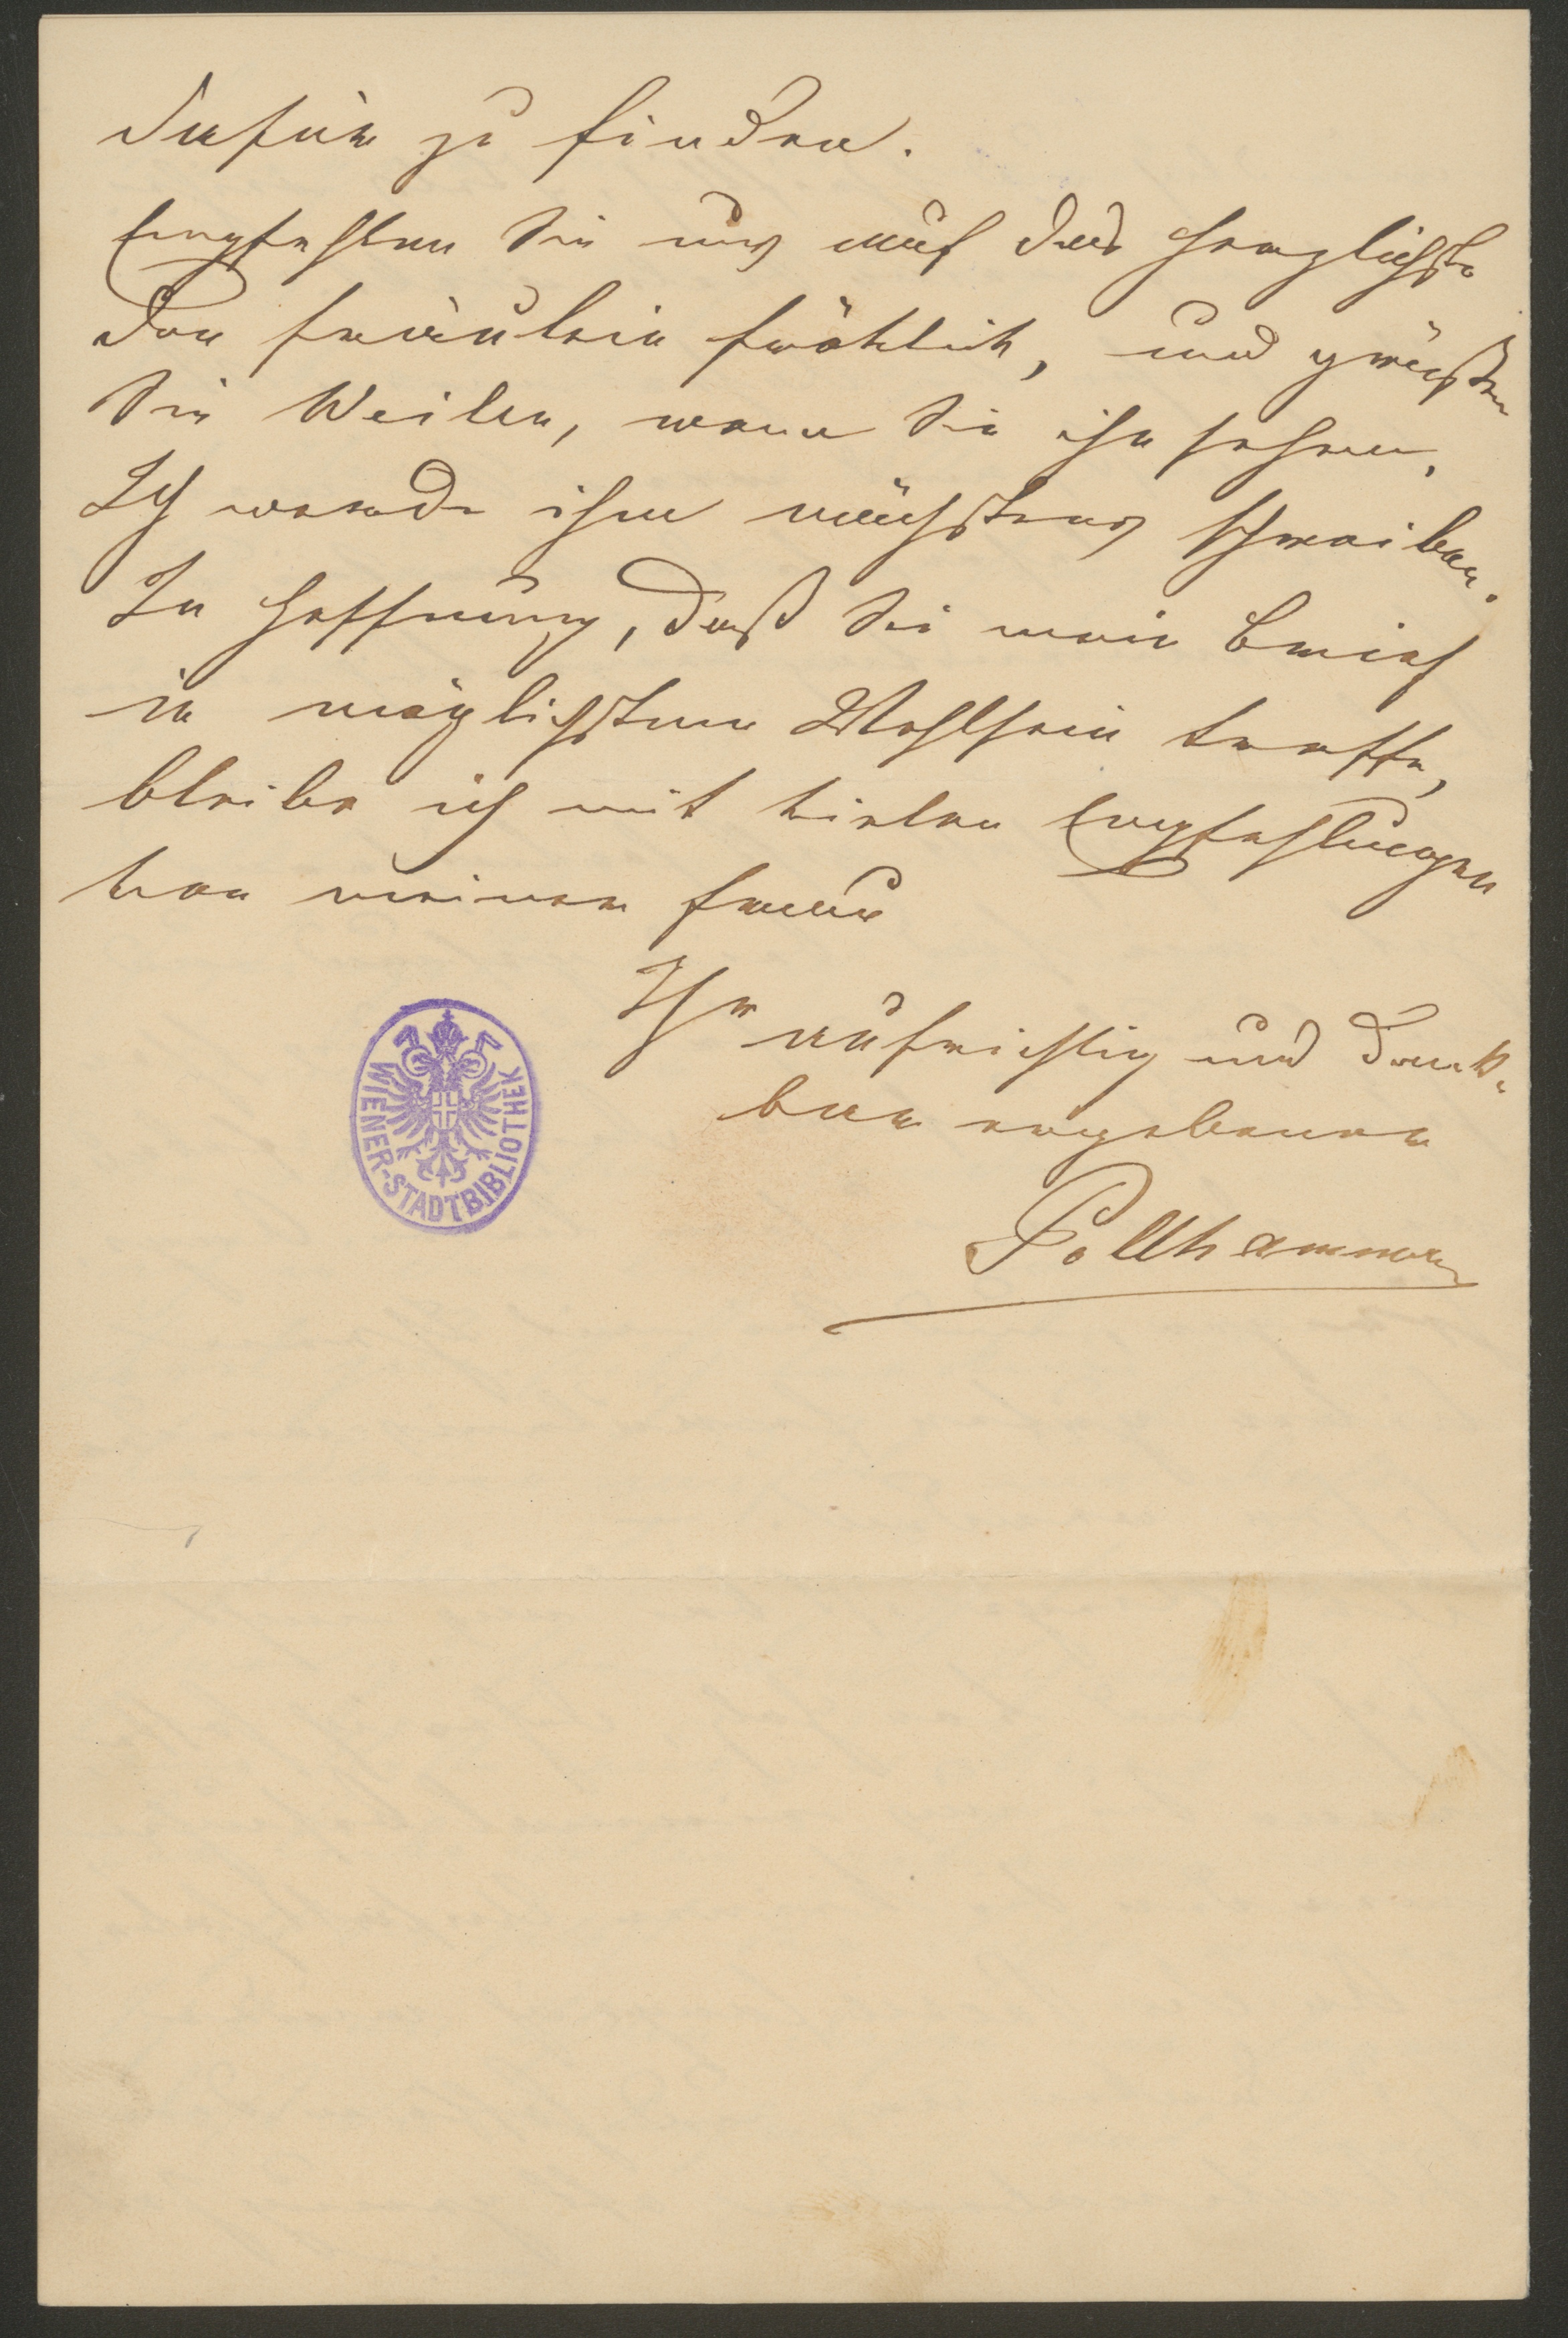 dafür zu finden.
Empfehlen Sie uns auf das herzlichste
den Fräulein Fröhlich, und grüßen
Sie Weilen, wenn Sie ihn sehen,
Ich werde ihm nächstens schreiben.
In Hoffnung, daß Sie mein Brief
in möglichstem Wohlsein treffe,
bleibe ich mit vielen Empfehlungen
von meiner Frau
Ihr aufrichtig und dank-
bar ergebener
Pollhammer
WIENER-STADTBIBLIOTHEK